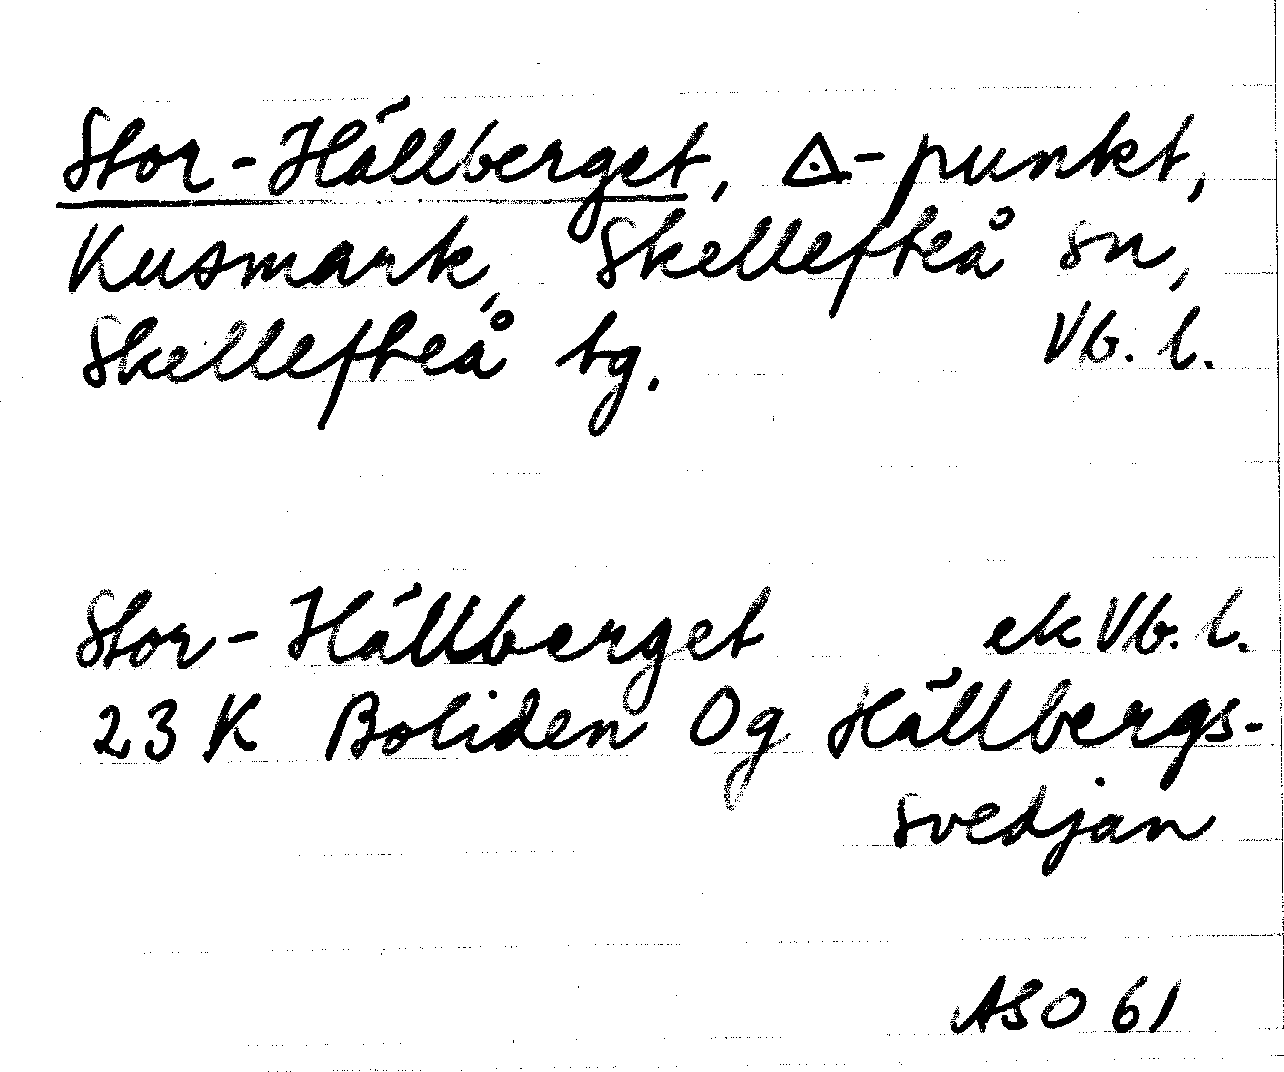 Stor-Hällberget, ◬-punkt,
Kusmark, Skellefteå sn,
Skellefteå tg. Vb. l.
Stor-Hällberget ek Vb. l.
23 K Boliden Og Hällbergs-
svedjan
ASO 61